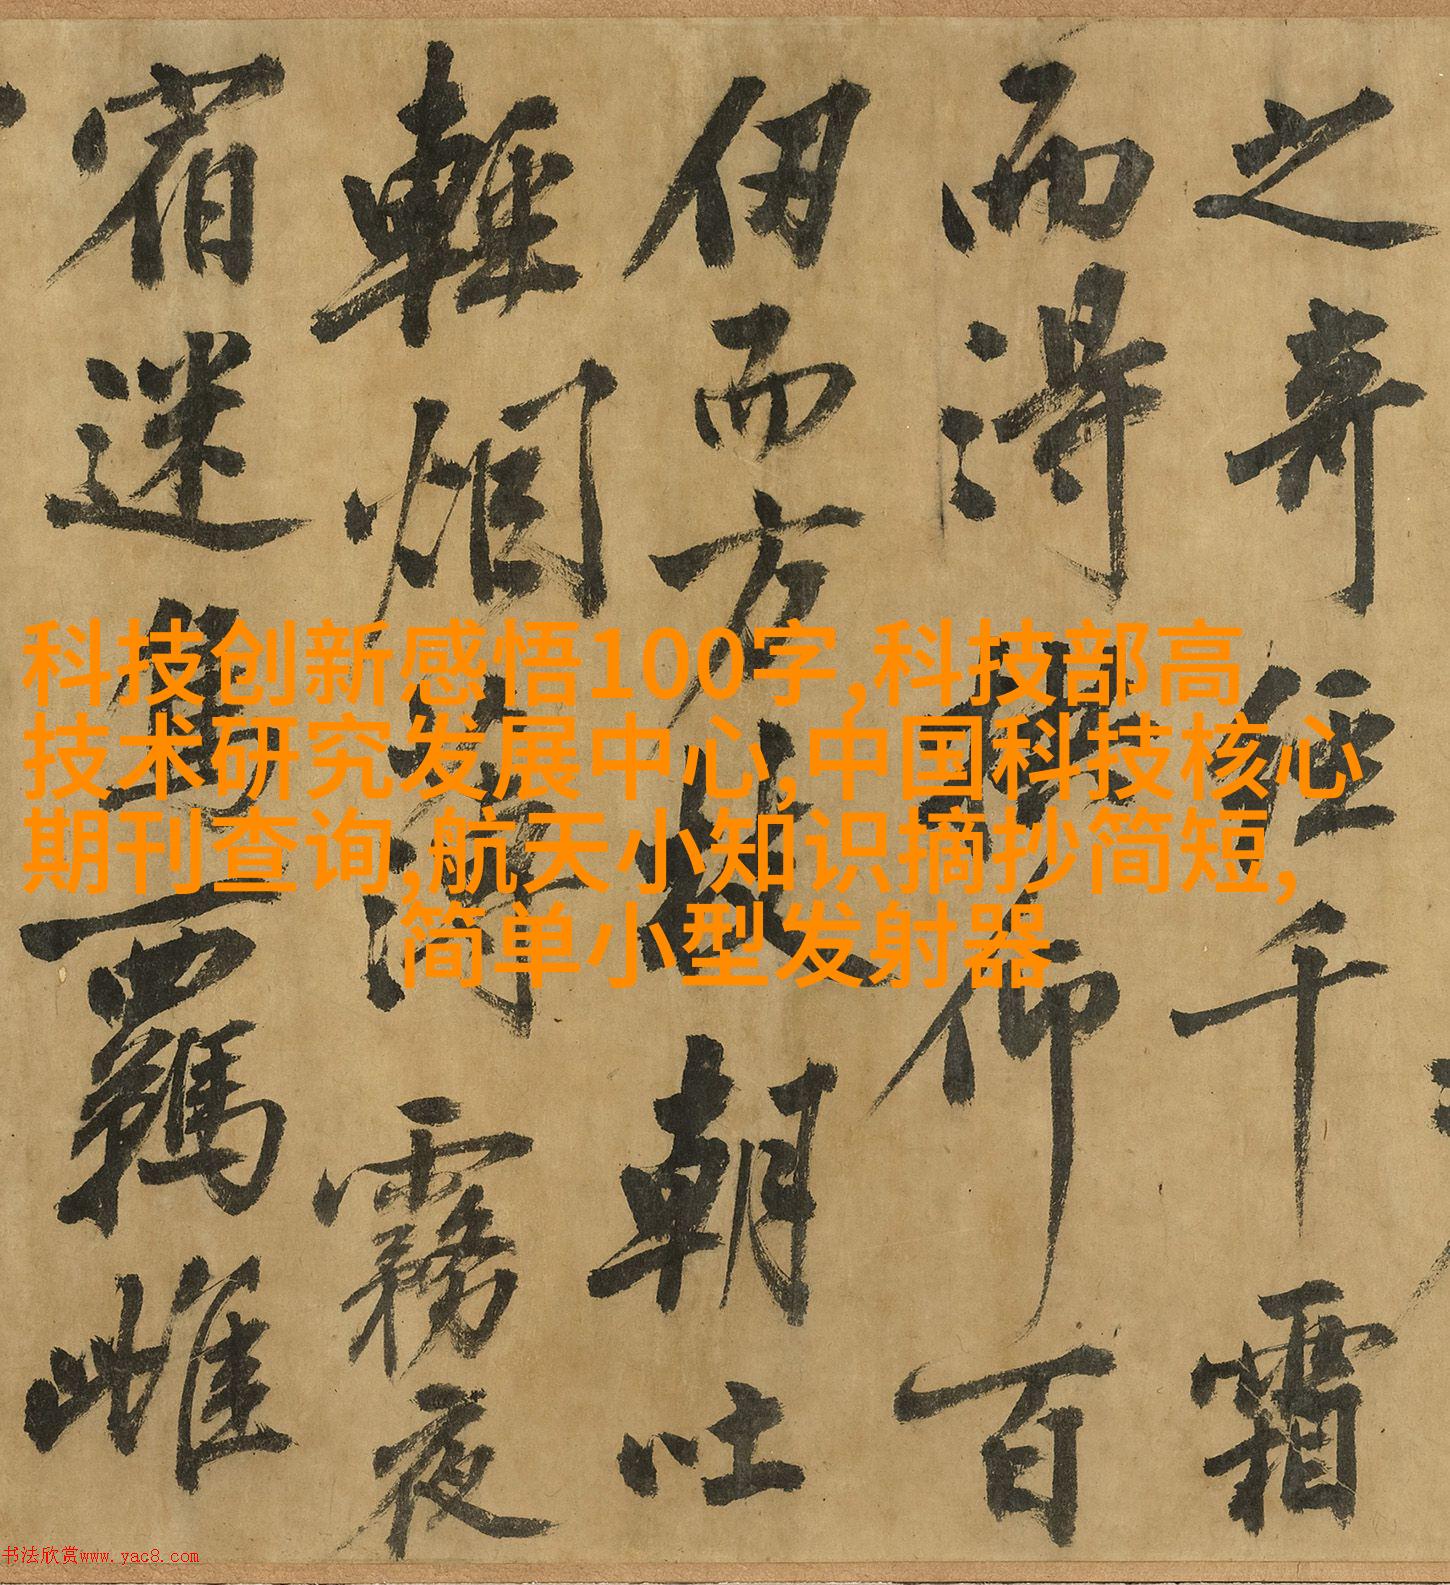 之奇徑千霜
而得仰百
仞而方枝朝吐
輕烟薄霧夜
宿迷鳥羈雌
科技创新感悟100字,科技部高
技术研究发展中心,中国科技核心
期刊查询,航天小知识摘抄简短,
简单小型发射器
书法欣赏www.yac8.com